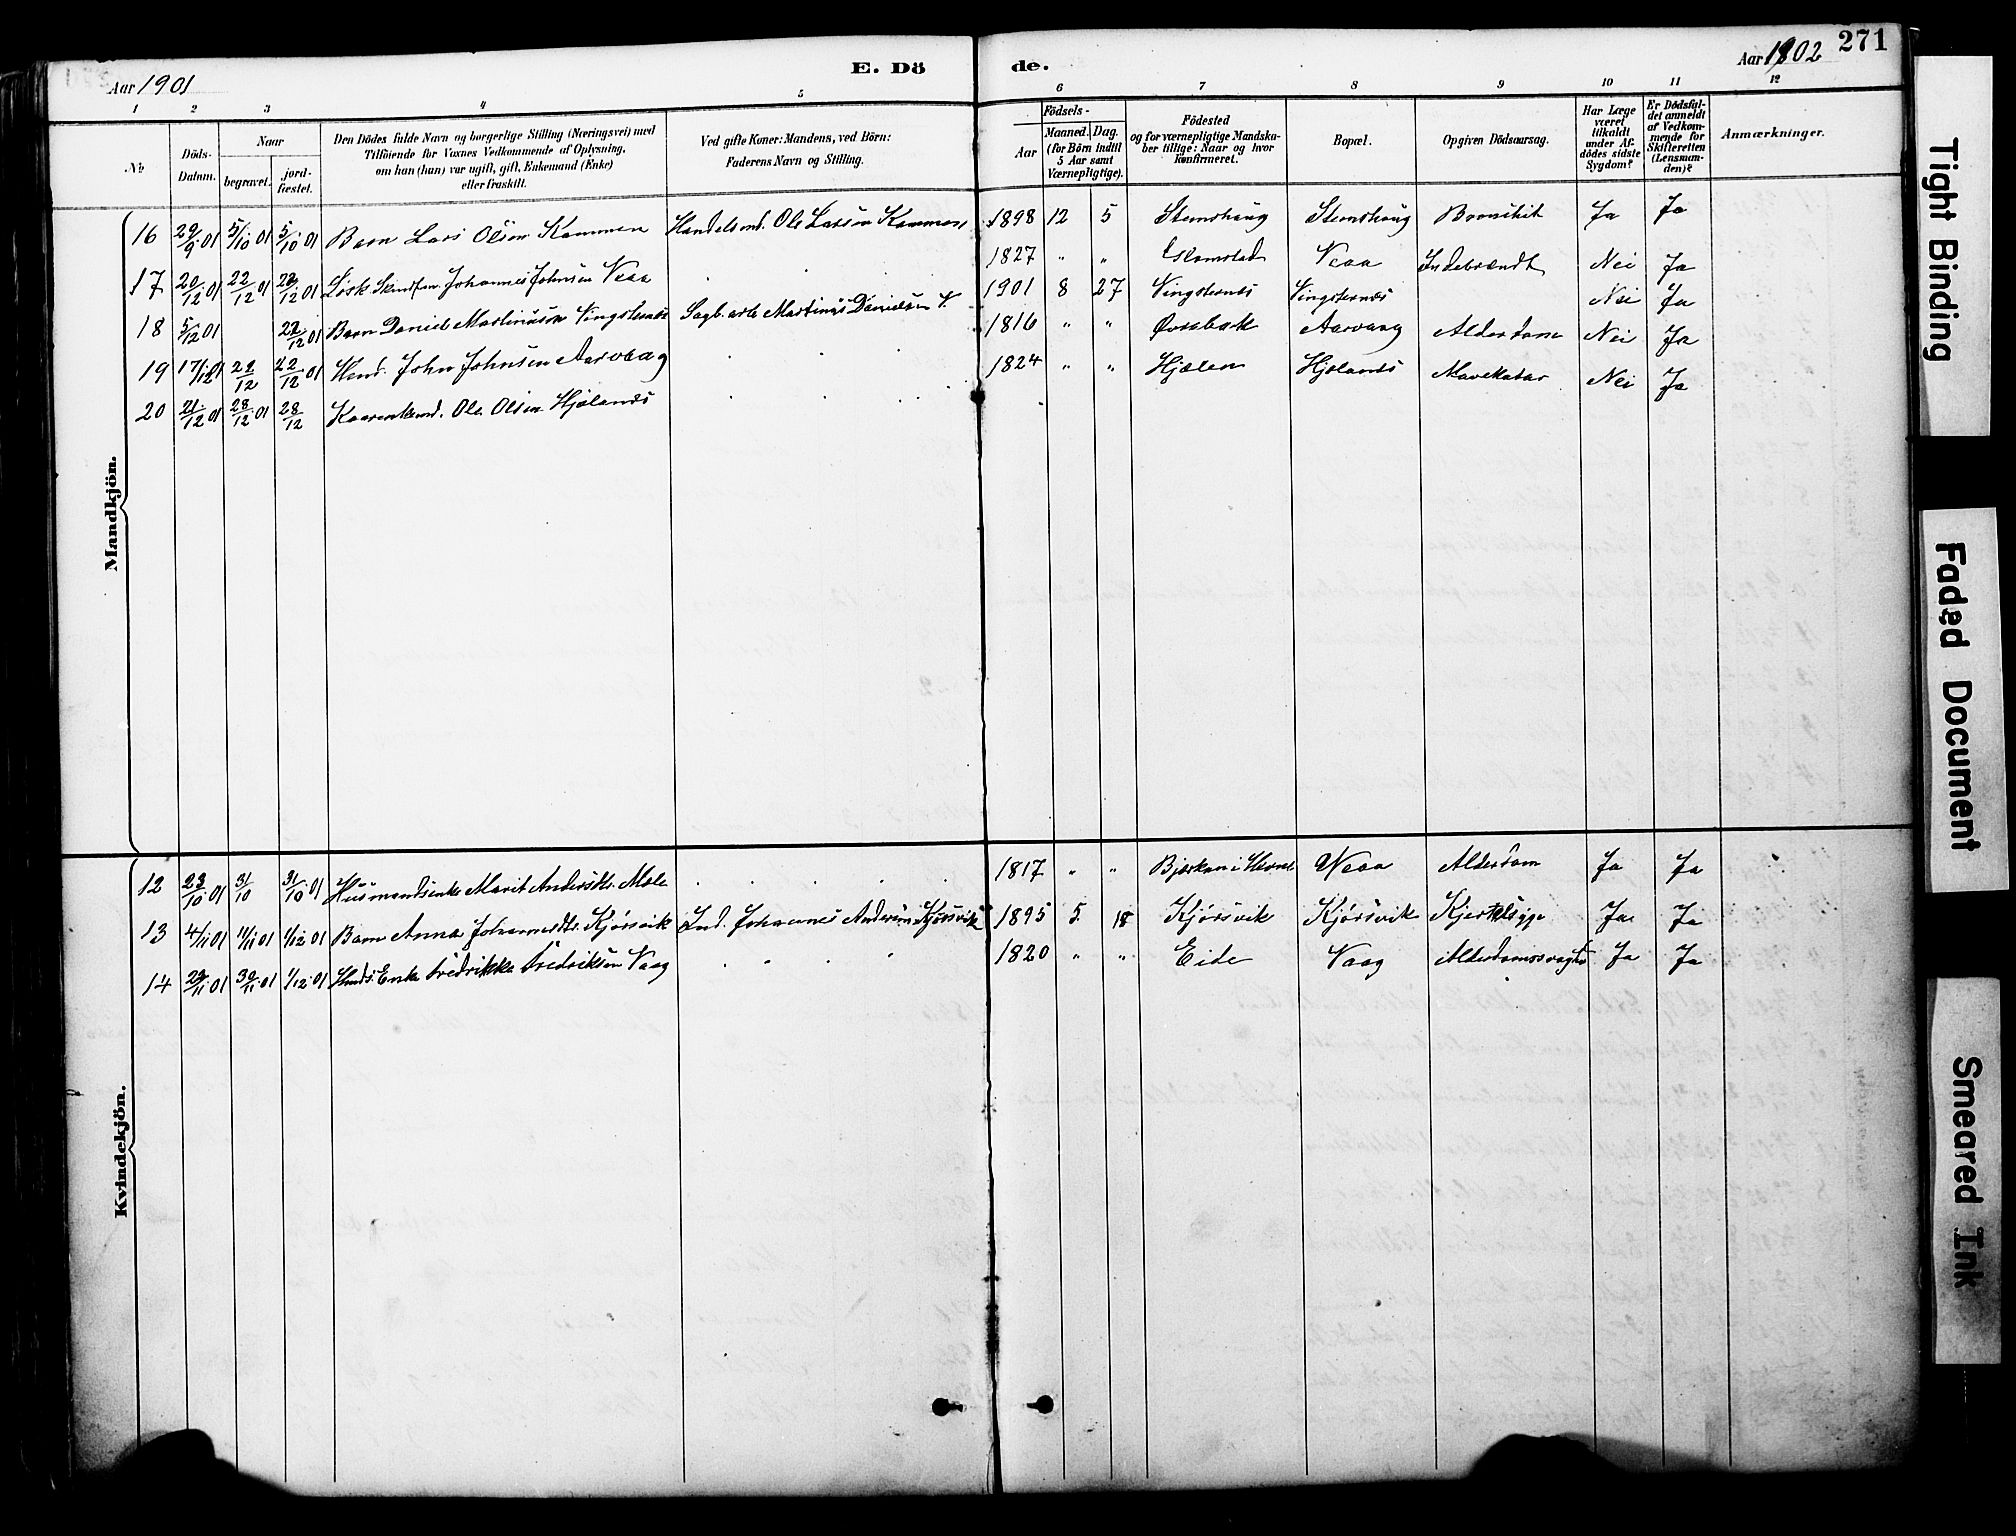 Aar 1901
E. Dö
de.
Aar 1902
271
1 2 3 4 5 6 7 8 9 10 11 12
No
Döds-Datum.
Naar
begravet.
jord-fæstet.
Den Dödes fulde Navn og borgerlige Stilling (Næringsvei) med
Tilföiende for Voxnes Vedkommende af Oplysning,
om han (hun) var ugift, gift, Enkemand (Enke)
eller fraskilt.
Ved gifte Koner: Mandens, ved Börn:
Faderens Navn og Stilling.
Födsels-
Aar
Maaned. Dag.
(for Börn indtil
5 Aar samt
Værnepligtige).
Födested
og for værnepligtige Mandska-
ber tillige: Naar og hvor
konfirmeret.
Bopæl.
Opgiven Dödsaarsag.
Har Læge
været
tilkaldt
under Af-
dödes sidste
Sygdom?
Er Dödsfal-
det anmeldt
af Vedkom-
mende for
Skifteretten
(Lensman-
den)?
Anmærkninger.
Mandkjön.
16 29/9 01 5/10 01 5/10 01 Barn Lars Olsen Kammen Handelsmd. Ole Larsen Kammen 1898 12 5 Stemshaug Stemshaug Bronchit Ja Ja
17 20/12 01 22/12 01 22/12 01 Johannes Johnsen Veaa 1827 " " Veaa Nei Ja
18 5/12 01 22/12 01 Barn Daniel Martinusen Vingsternes Martinus Danielsen V. 1901 8 27 Vingsternes Vingsternes Nei Ja
19 17/12 01 22/12 22/12 01 John Johnsen Aarvaag 1816 " " Aarvaag Alderdom Nei Ja
20 21/12 01 28/12 01 28/12 Ole Olsen Hjelands 1824 " " Hjælen Hjelands Mavekatar Nei Ja
Kvindekjön.
12 23/10 01 31/10 31/10 01 Husmandsenke Marit Andersdtr. Mele 1817 " " Veaa Alderdom Ja Ja
13 4/11 01 11/11 01 1/12 01 Barn Anna Johannesdtr. Kjørsvik Ind. Johannes Andersen Kjørsvik 1895 5 18 Kjørsvik Kjørsvik Kjertelsyge Ja Ja
14 23/11 01 30/11 01 1/12 01 Enke Fredrikka Fredriksen Vaag 1820 " " Eide Vaag Alderdomssvaghed Ja Ja
Tight Binding
Faded Document
Smeared Ink